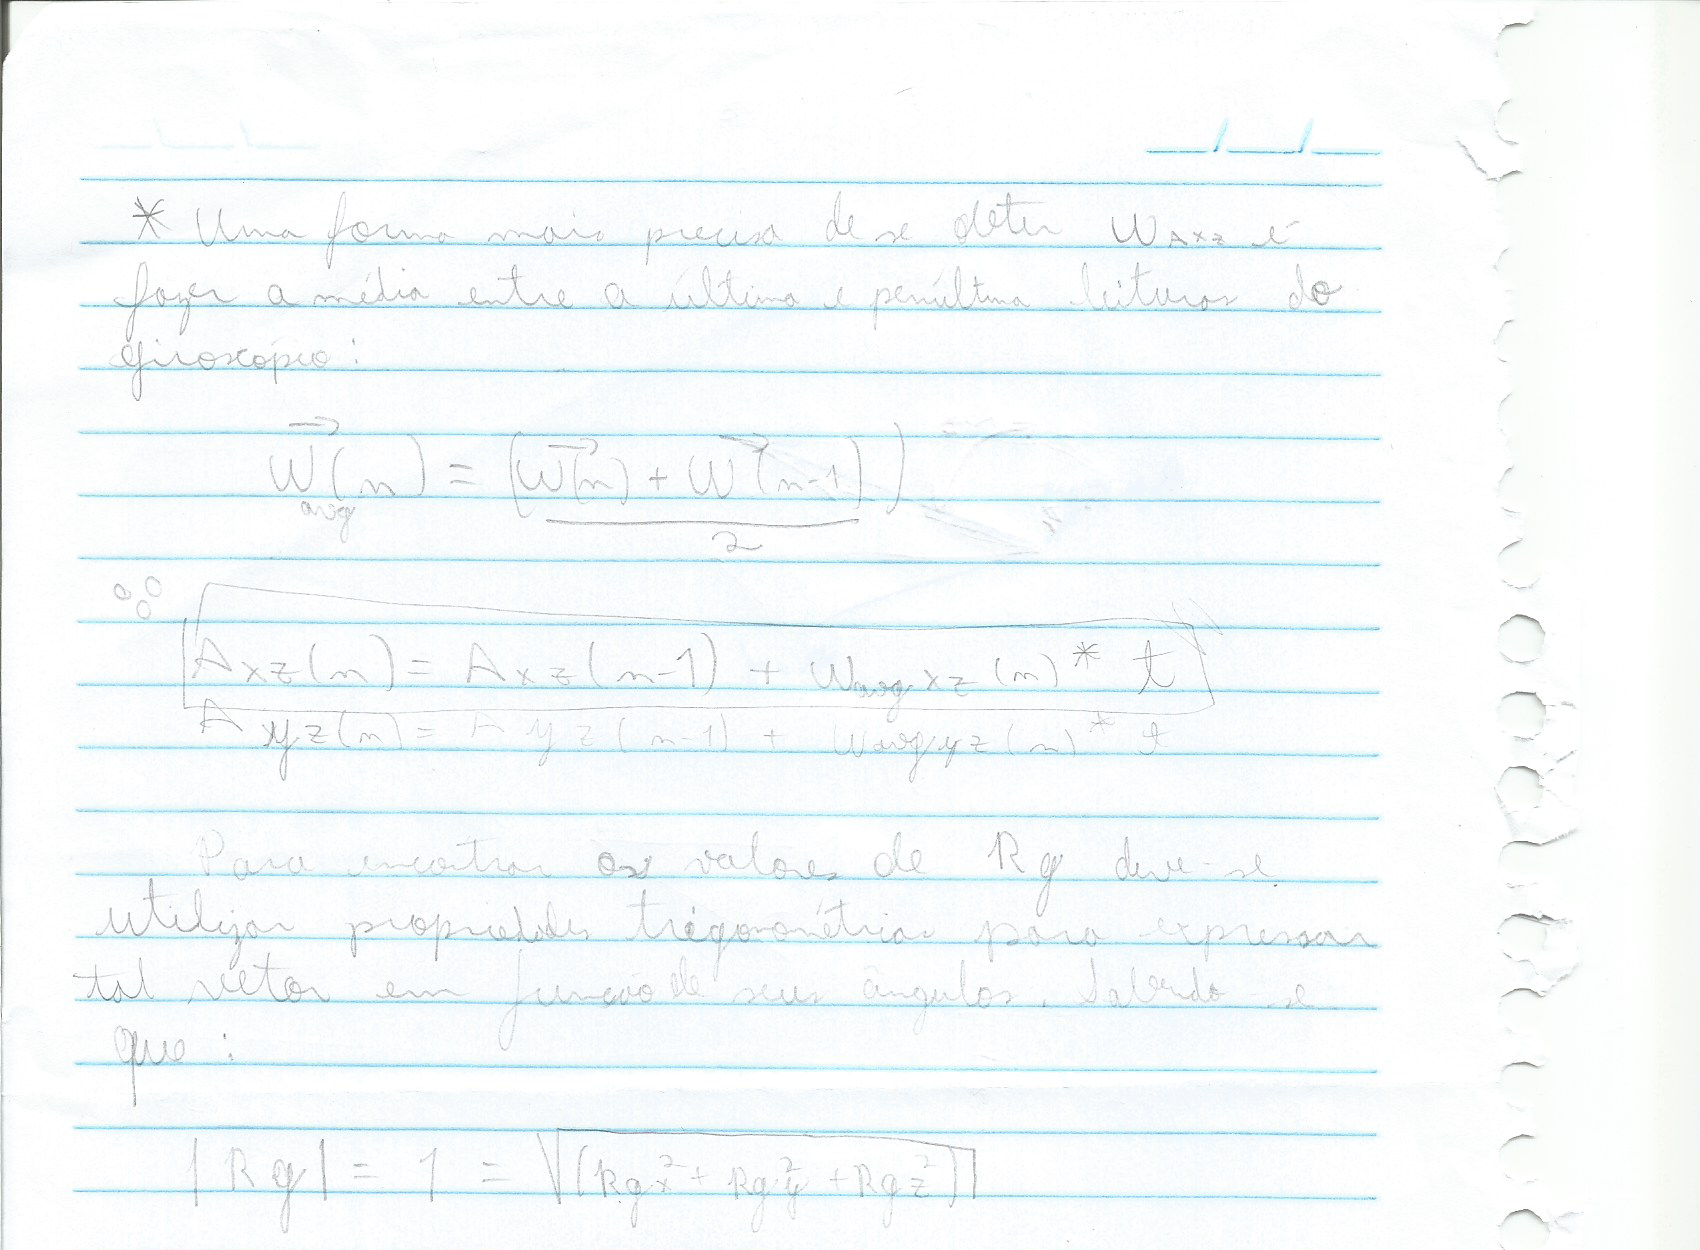 * Uma forma mais precisa de se deter W AXZ é
fazer a média entre a última e penúltima leituras do
giroscópio:
W avg (n) = (W(n) + W(n-1))
2
Axz(n) = Axz(n-1) + Wavgxz(n) * t
Ayz(n) = Ayz(n-1) + Wavgyz(n) * t
Para encontrar os valores de Rg deve-se
utilizar propriedades trigonométricas para expressar
tal vetor em função de seus ângulos. Sabendo-se
que:
|Rg| = 1 = √(Rgx² + Rgy² + Rgz²)